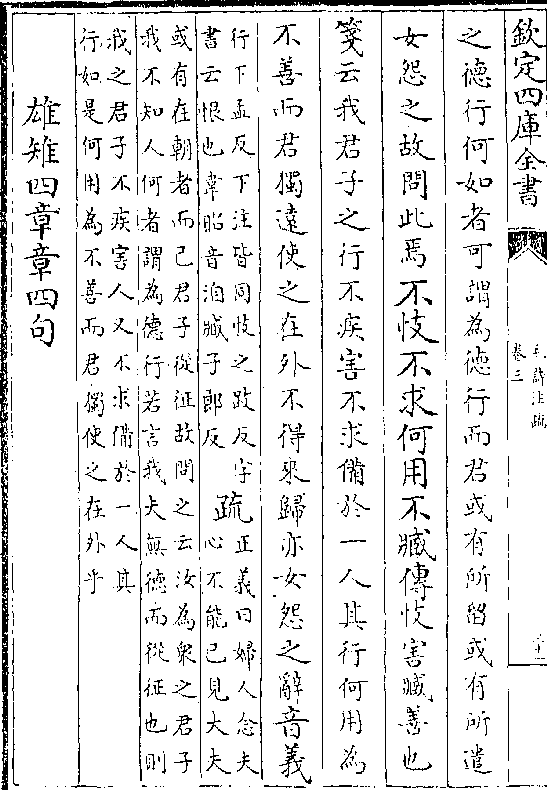 欽定四庫全書
毛詩注疏
卷三
之德行何如者可謂為德行而君或有所留或有所遣
女怨之故問此焉不忮不求何用不臧傳忮害臧善也
箋云我君子之行不疾害不求備於一人其行何用為
不善而君獨遠使之在外不得來歸亦女怨之辭音義
行下孟反下注皆同忮之跂反字
書云恨也韋昭音洎臧子郎反
疏
正義曰婦人念夫
心不能已見大夫
或有在朝者而己君子從征故問之云汝為衆之君子
我不知人何者謂為德行若言我夫無德而從征也則
我之君子不疾害人又不求備於一人其
行如是何用為不善而君獨使之在外乎
雄雉四章章四句